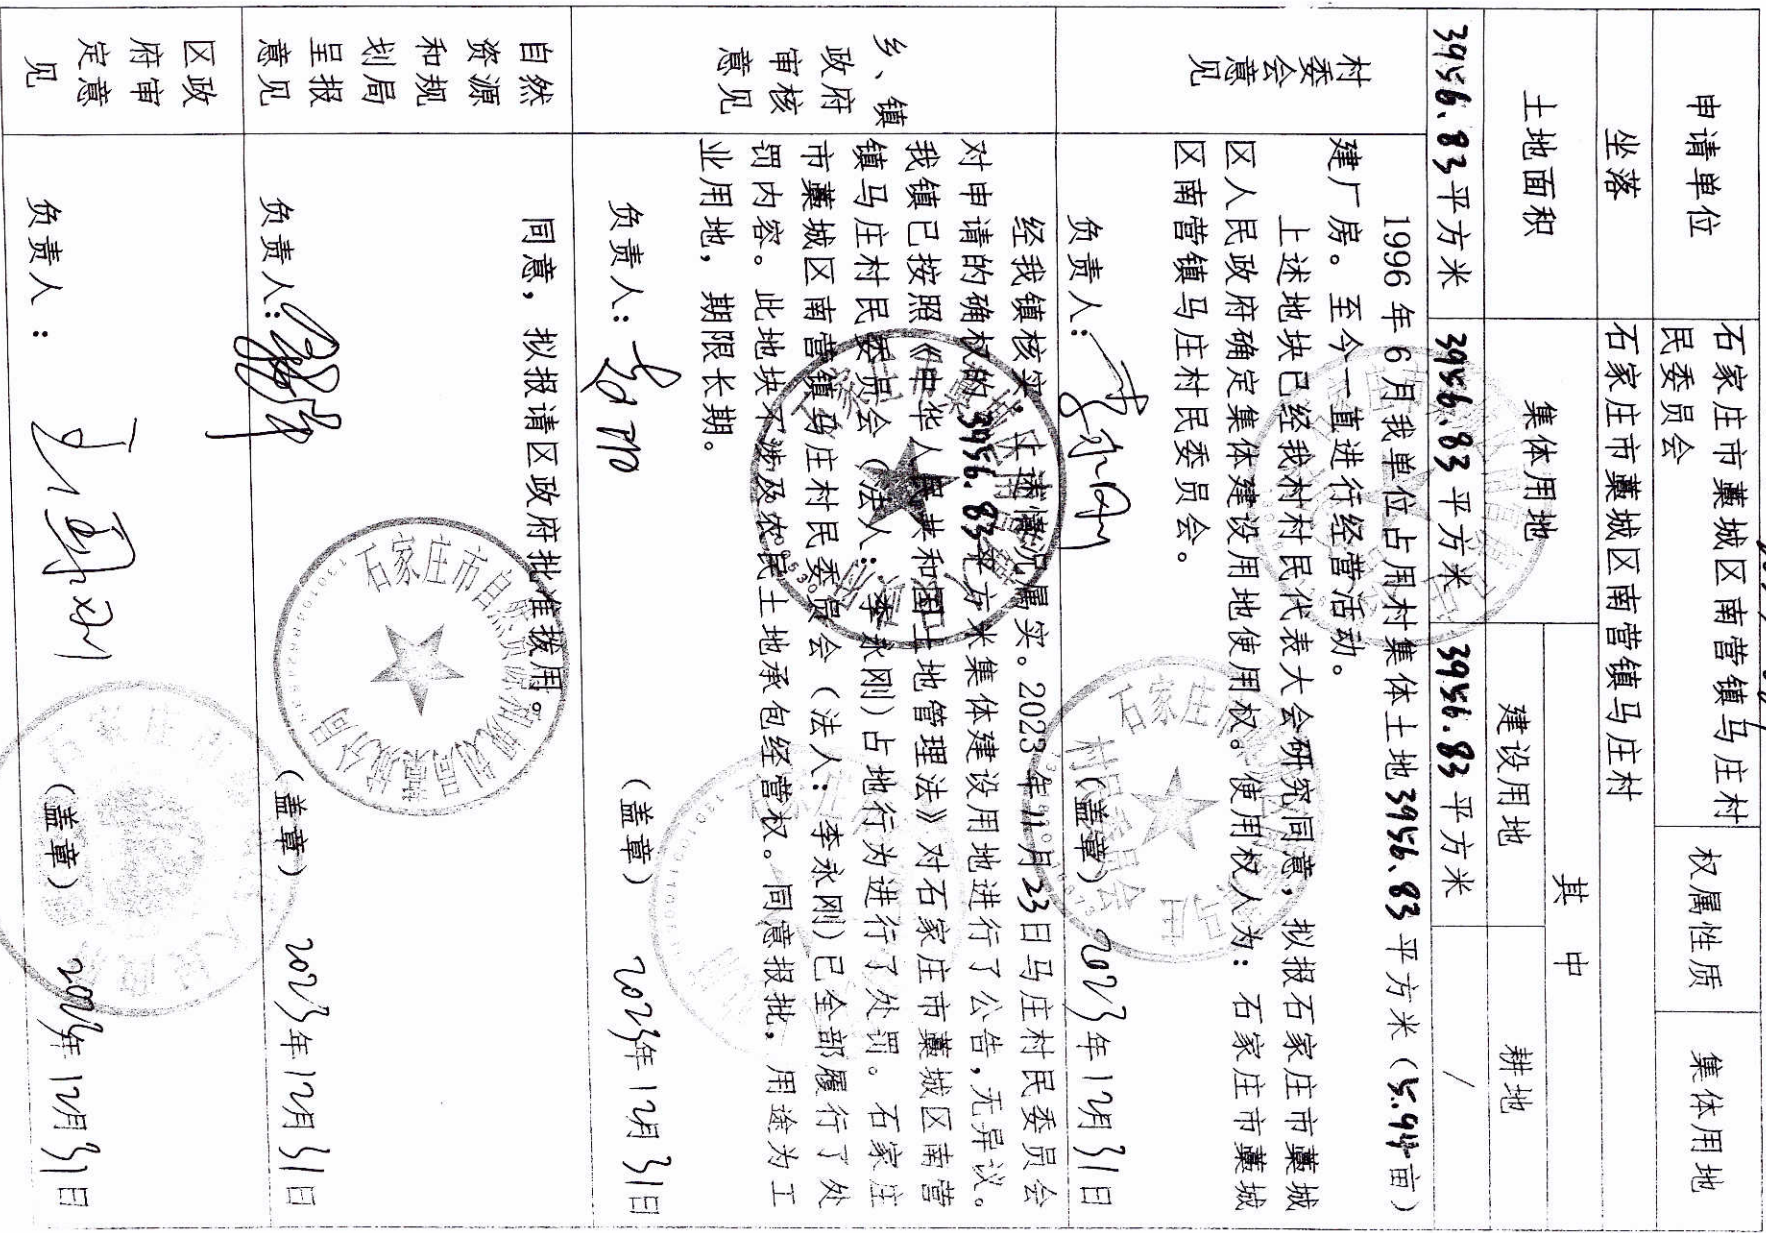 申请单位 石家庄市藁城区南营镇马庄村民委员会 权属性质 集体用地
坐落 石家庄市藁城区南营镇马庄村
土地面积 集体用地 其中
建设用地 耕地
3956.83平方米 3956.83平方米 3956.83平方米 /
村委会意见
1996年6月我单位占用村集体土地3956.83平方米（5.94亩）
建厂房。至今一直进行经营活动。
上述地块已经我村村民代表大会研究同意，拟报石家庄市藁城
区人民政府确定集体建设用地使用权。使用权人为：石家庄市藁城
区南营镇马庄村民委员会。
负责人： （盖章） 2023年12月31日
乡、镇政府审核意见
经我镇核实，上述情况属实。2023年11月23日马庄村民委员会
对申请的确权的3956.83平方米集体建设用地进行了公告，无异议。
我镇已按照《中华人民共和国土地管理法》对石家庄市藁城区南营
镇马庄村民委员会（法人：李永刚）占地行为进行了处罚。石家庄
市藁城区南营镇马庄村民委员会（法人：李永刚）已全部履行了处
罚内容。此地块不涉及农民土地承包经营权。同意报批，用途为工
业用地，期限长期。
负责人： （盖章） 2023年12月31日
自然资源和规划局呈报意见
同意，拟报请区政府批准拨用。
负责人： （盖章） 2023年12月31日
石家庄市自然资源和规划局藁城分局
区政府审定意见
负责人： （盖章） 2023年12月31日